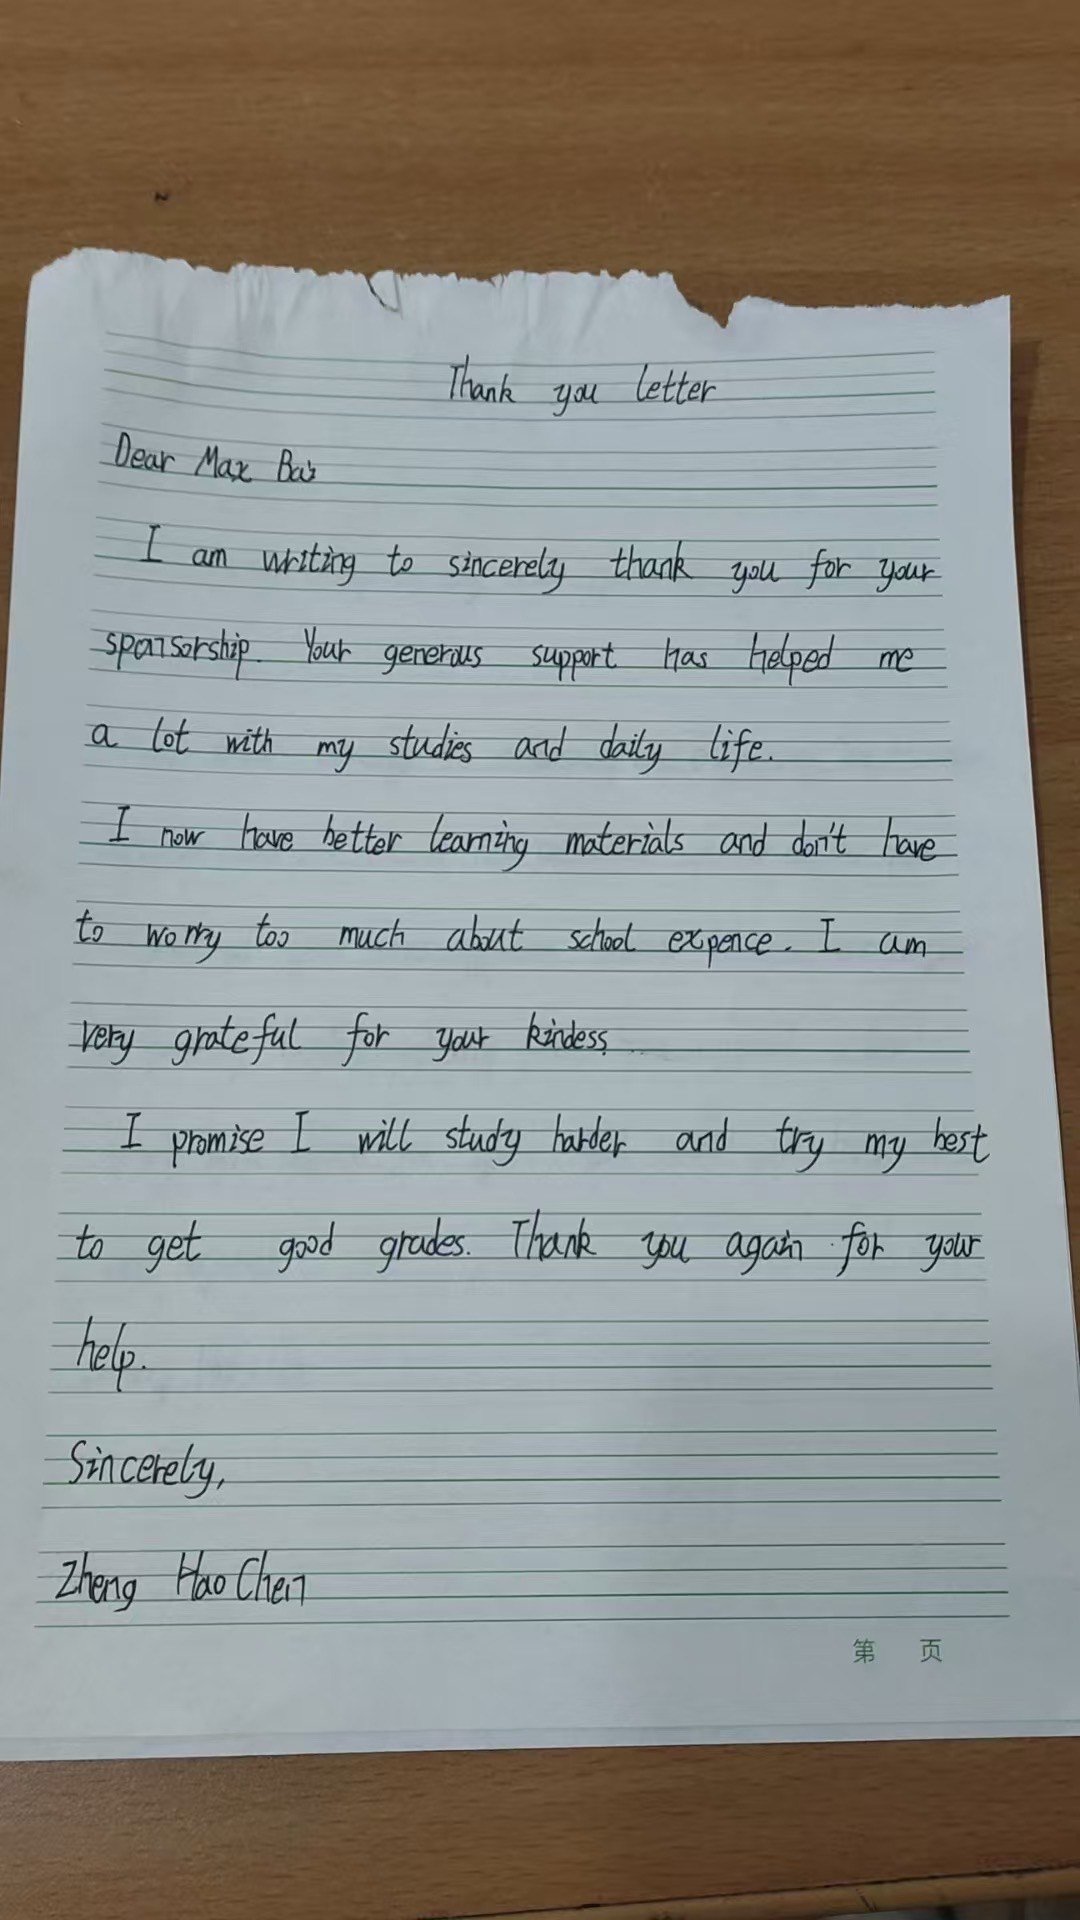 Thank you letter
Dear Max Bai
I am writing to sincerely thank you for your
sponsorship. Your generous support has helped me
a lot with my studies and daily life.
I now have better learning materials and don't have
to worry too much about school expence. I am
very grateful for your kindess.
I promise I will study harder and try my best
to get good grades. Thank you again for your
help.
Sincerely,
Zheng HaoChen
第 页